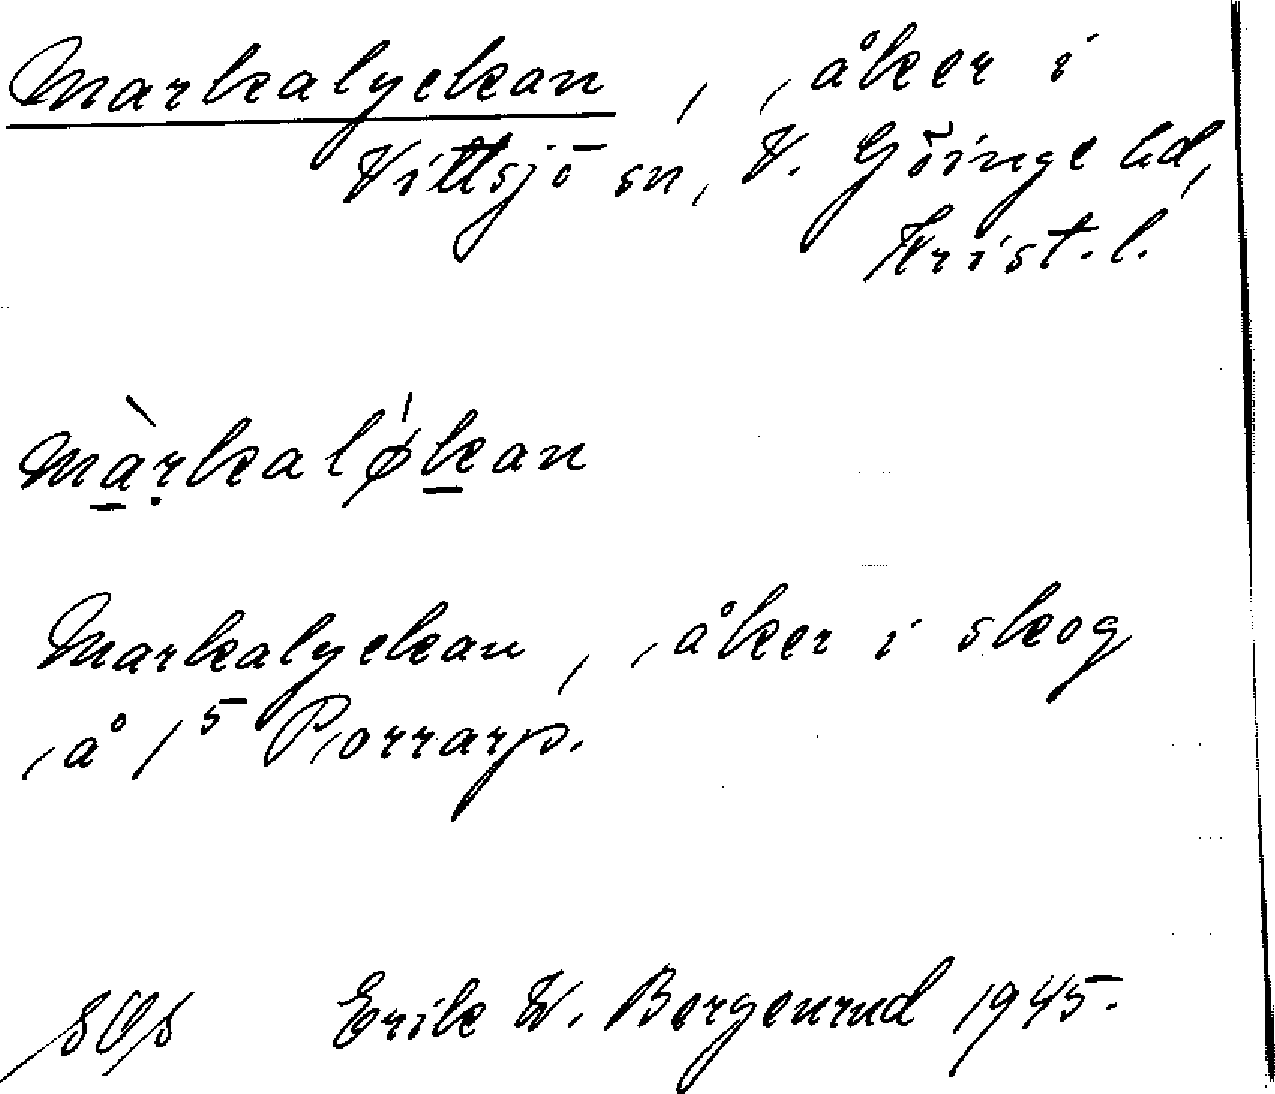 Markalyckan, , åker i
Vittsjö sn, V. Göinge hd,
Krist.l.
màrkaløkan
Markalyckan, , åker i skog
, å 1⁵ Porrarp.
Erik W. Bergenrud 1945.